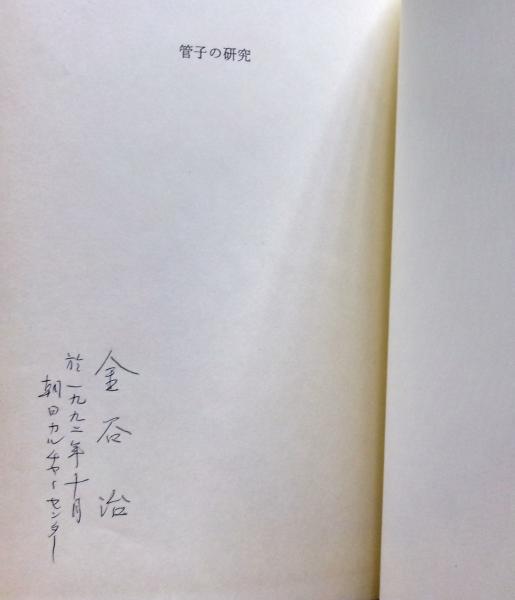 管子の研究
金谷治
於一九九二年十月
朝日カルチャーセンター